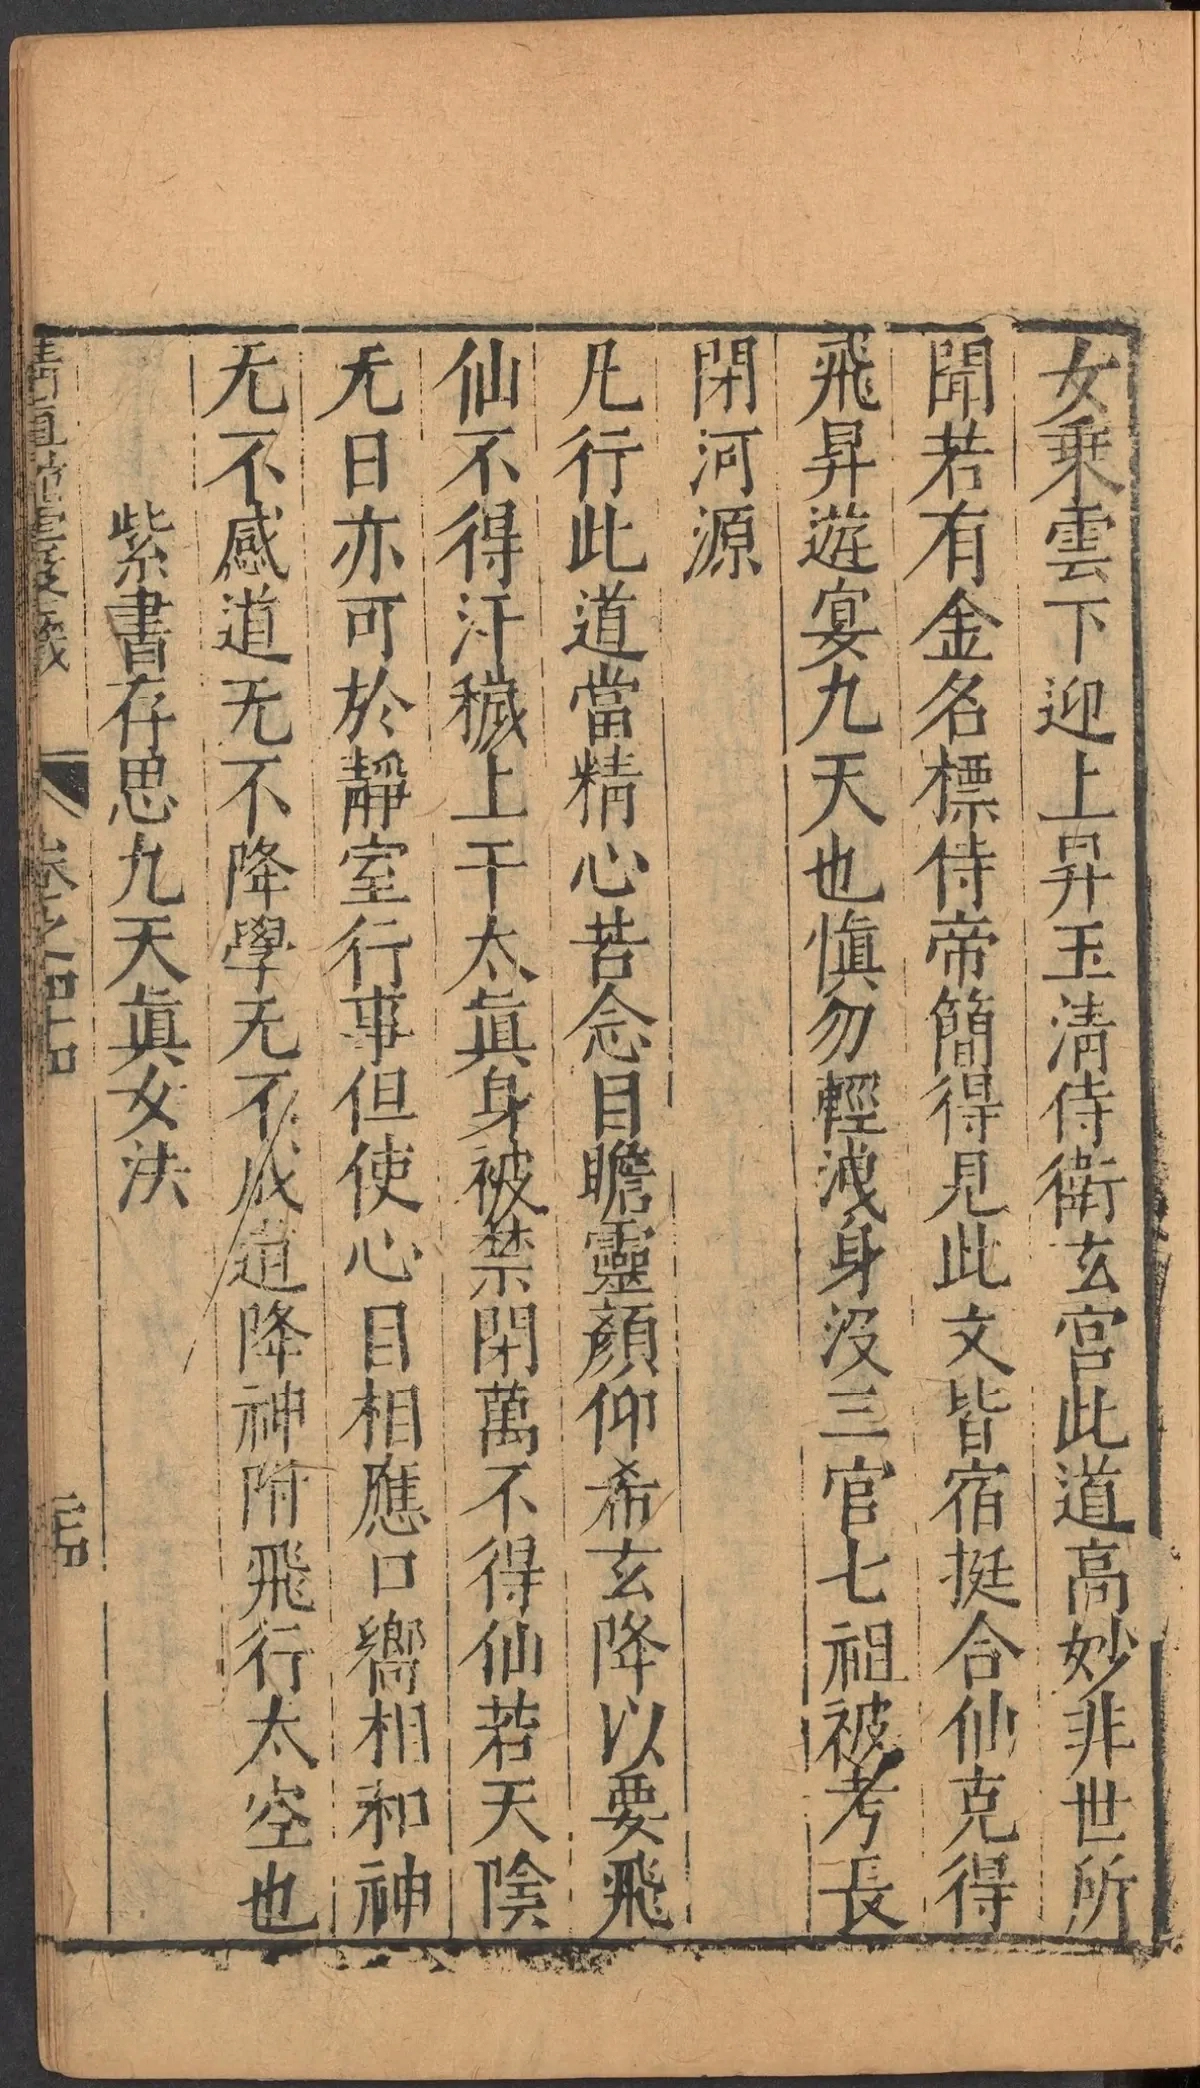 女乗雲下迎上昇玉清侍衛玄宫此道高妙非世所
聞若有金名標侍帝簡得見此文皆宿挺合仙克得
飛昇遊宴九天也慎勿輕洩身没三官七祖被考長
閉河源
凡行此道當精心苦念目瞻靈顔仰希玄降以要飛
仙不得汙穢上干太眞身被禁閉萬不得仙若天陰
无日亦可於靜室行事但使心目相應口嚮相和神
无不感道无不降學无不成道降神附飛行太空也
紫書存思九天眞女法
卷之四十四